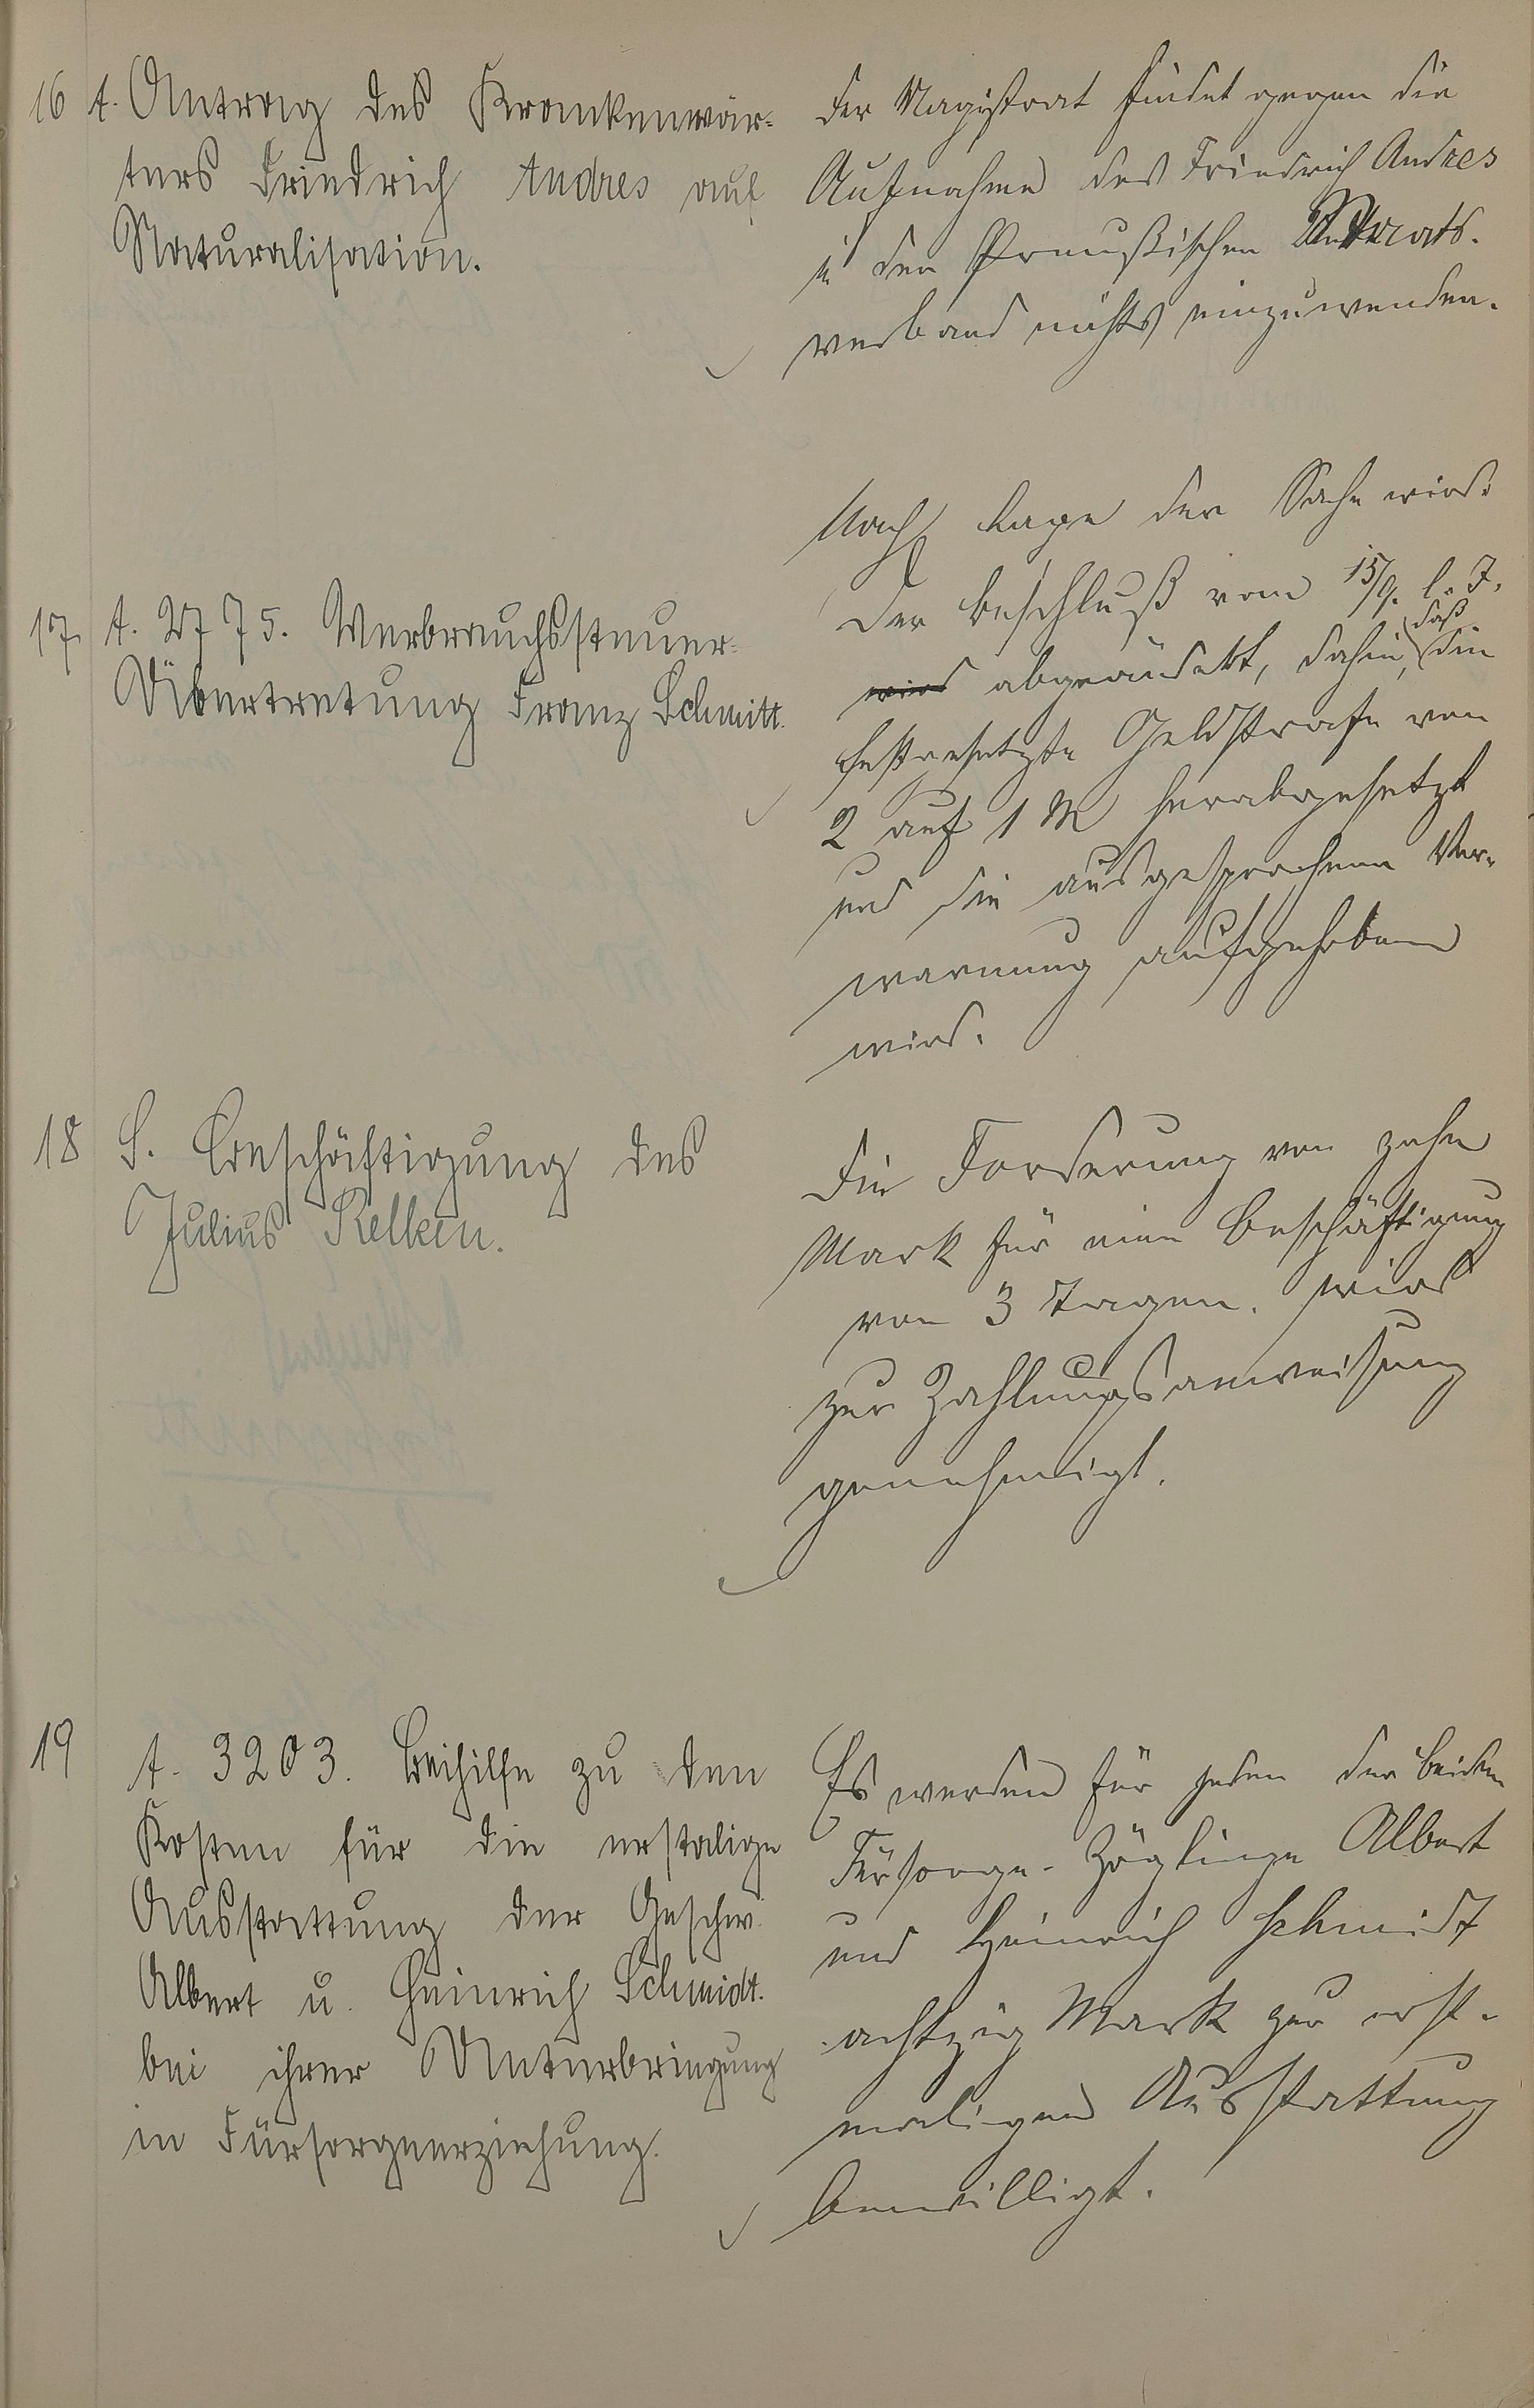 16 A. Antrag des Krankenwär-
ters Friedrich Andres auf
Naturalisation.
Der Magistrat findet gegen die
Aufnahme des Friedrich Andres
in den Preußischen Staats-
verband nichts einzuwenden.
17 A. 2775. Verbrauchssteuer-
Übertretung Franz Schmitt.
Nach Lage der Sache wird
der Beschluß vom 15/9. l. J.
wird abgeändert, dahin, daß die
festgesetzte Geldstrafe von
2 auf 1 M herabgesetzt
und die ausgesprochene Ver-
warnung aufgehoben
wird.
18 S. Beschäftigung des
Julius Relken.
Die Forderung von zehn
Mark für eine Beschäftigung
von 3 Tagen. wird
zur Zahlungsanweisung
genehmigt.
19 A. 3203. Beihilfe zu den
Kosten für die erstalige
Ausstattung der Geschw.
Albert u. Heinrich Schmidt.
bei ihrer Unterbringung
in Fürsorgeerziehung.
Es werden für jeden der beiden
Fürsorge-Zöglinge Albert
und Heinrich Schmidt
achtzig Mark zur erst-
maligen Ausstattung
bewilligt.